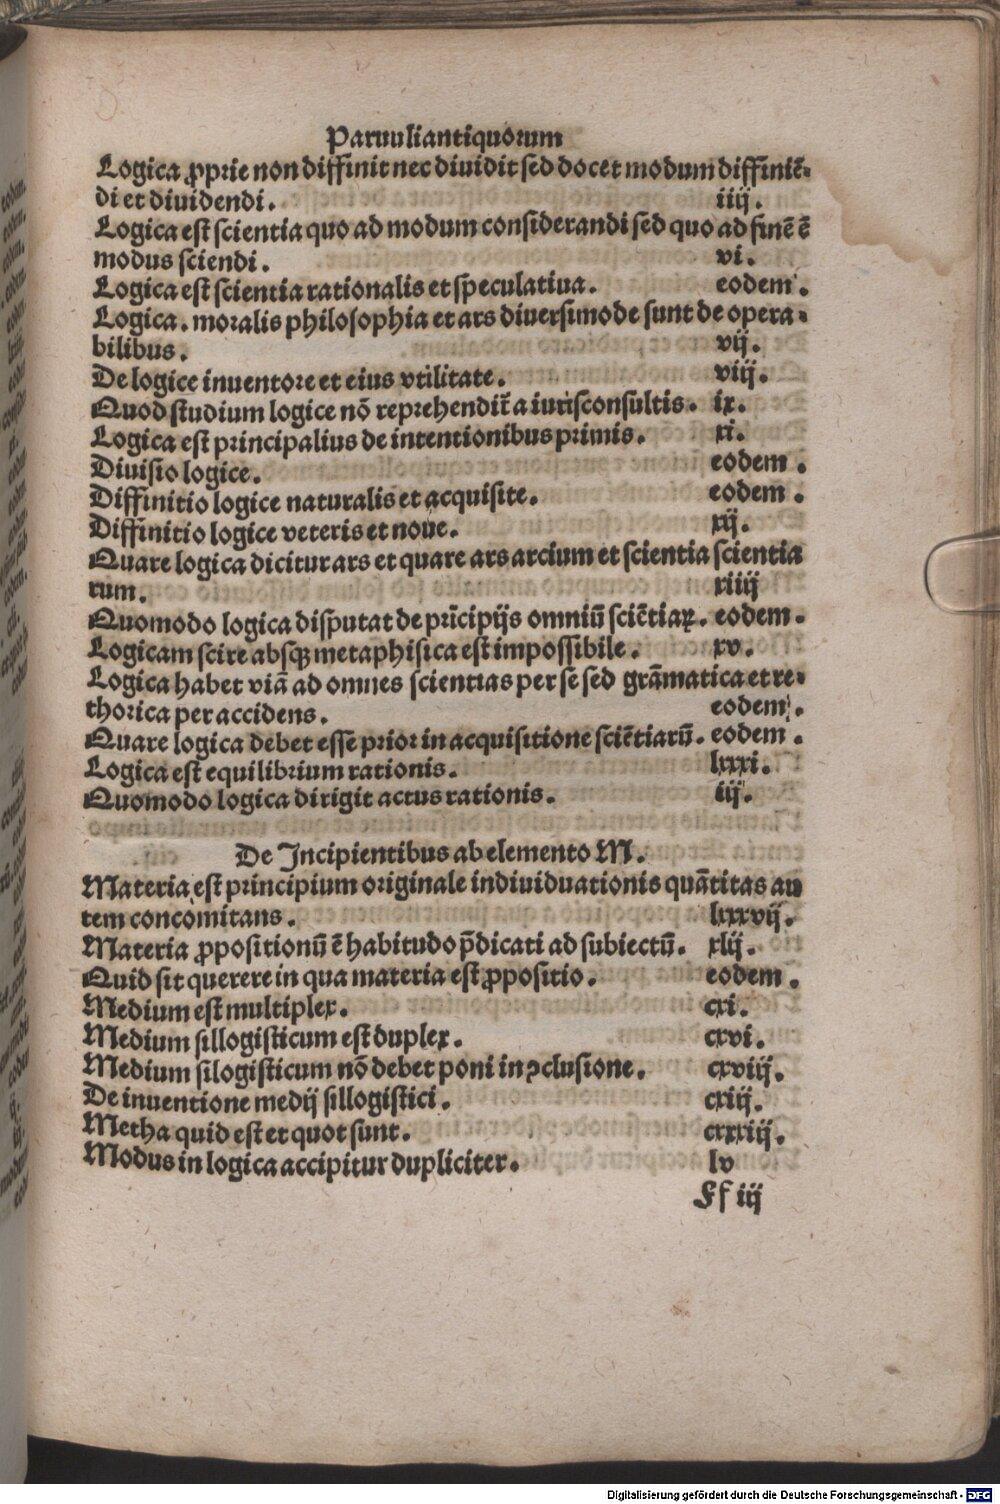 Paruuli antiquorum
Logica ꝓprie non diffinit nec diuidit sed docet modum diffiniē-
di et diuidendi. iiij.
Logica est scientia quo ad modum considerandi sed quo ad finē ē
modus sciendi. vi.
Logica est scientia rationalis et speculatiua. eodem.
Logica. moralis philosophia et ars diuersimode sunt de opera-
bilibus. vij.
De logice inuentore et eius vtilitate. viij.
Quod studium logice nō reprehendit̄ a iurisconsultis. ix.
Logica est principalius de intentionibus primis. xi.
Diuisio logice. eodem.
Diffinitio logice naturalis et acquisite. eodem.
Diffinitio logice veteris et noue. xij.
Quare logica dicitur ars et quare ars arcium et scientia scientia
rum. xiiij
Quomodo logica disputat de prīcipijs omniū sciētiaꝝ. eodem.
Logicam scire absqꝫ metaphisica est impossibile. xv.
Logica habet viā ad omnes scientias per se sed grāmatica et re-
thorica per accidens. eodem.
Quare logica debet esse prior in acquisitione sciētiarū. eodem.
Logica est equilibrium rationis. lxxxi.
Quomodo logica dirigit actus rationis. iij.
De Incipientibus ab elemento M.
Materia est principium originale indiuiduationis quātitas au
tem concomitans. lxxxvij.
Materia ꝓpositionū ē habitudo p̄dicati ad subiectū. xlij.
Quid sit querere in qua materia est ꝓpositio. eodem.
Medium est multiplex. cxi.
Medium sillogisticum est duplex. cxvi.
Medium silogisticum nō debet poni in ꝯclusione. cxviij.
De inuentione medij sillogistici. cxiij.
Metha quid est et quot sunt. cxxxiij.
Modus in logica accipitur dupliciter. lv
Ff iij
Digitalisierung gefördert durch die Deutsche Forschungsgemeinschaft - DFG